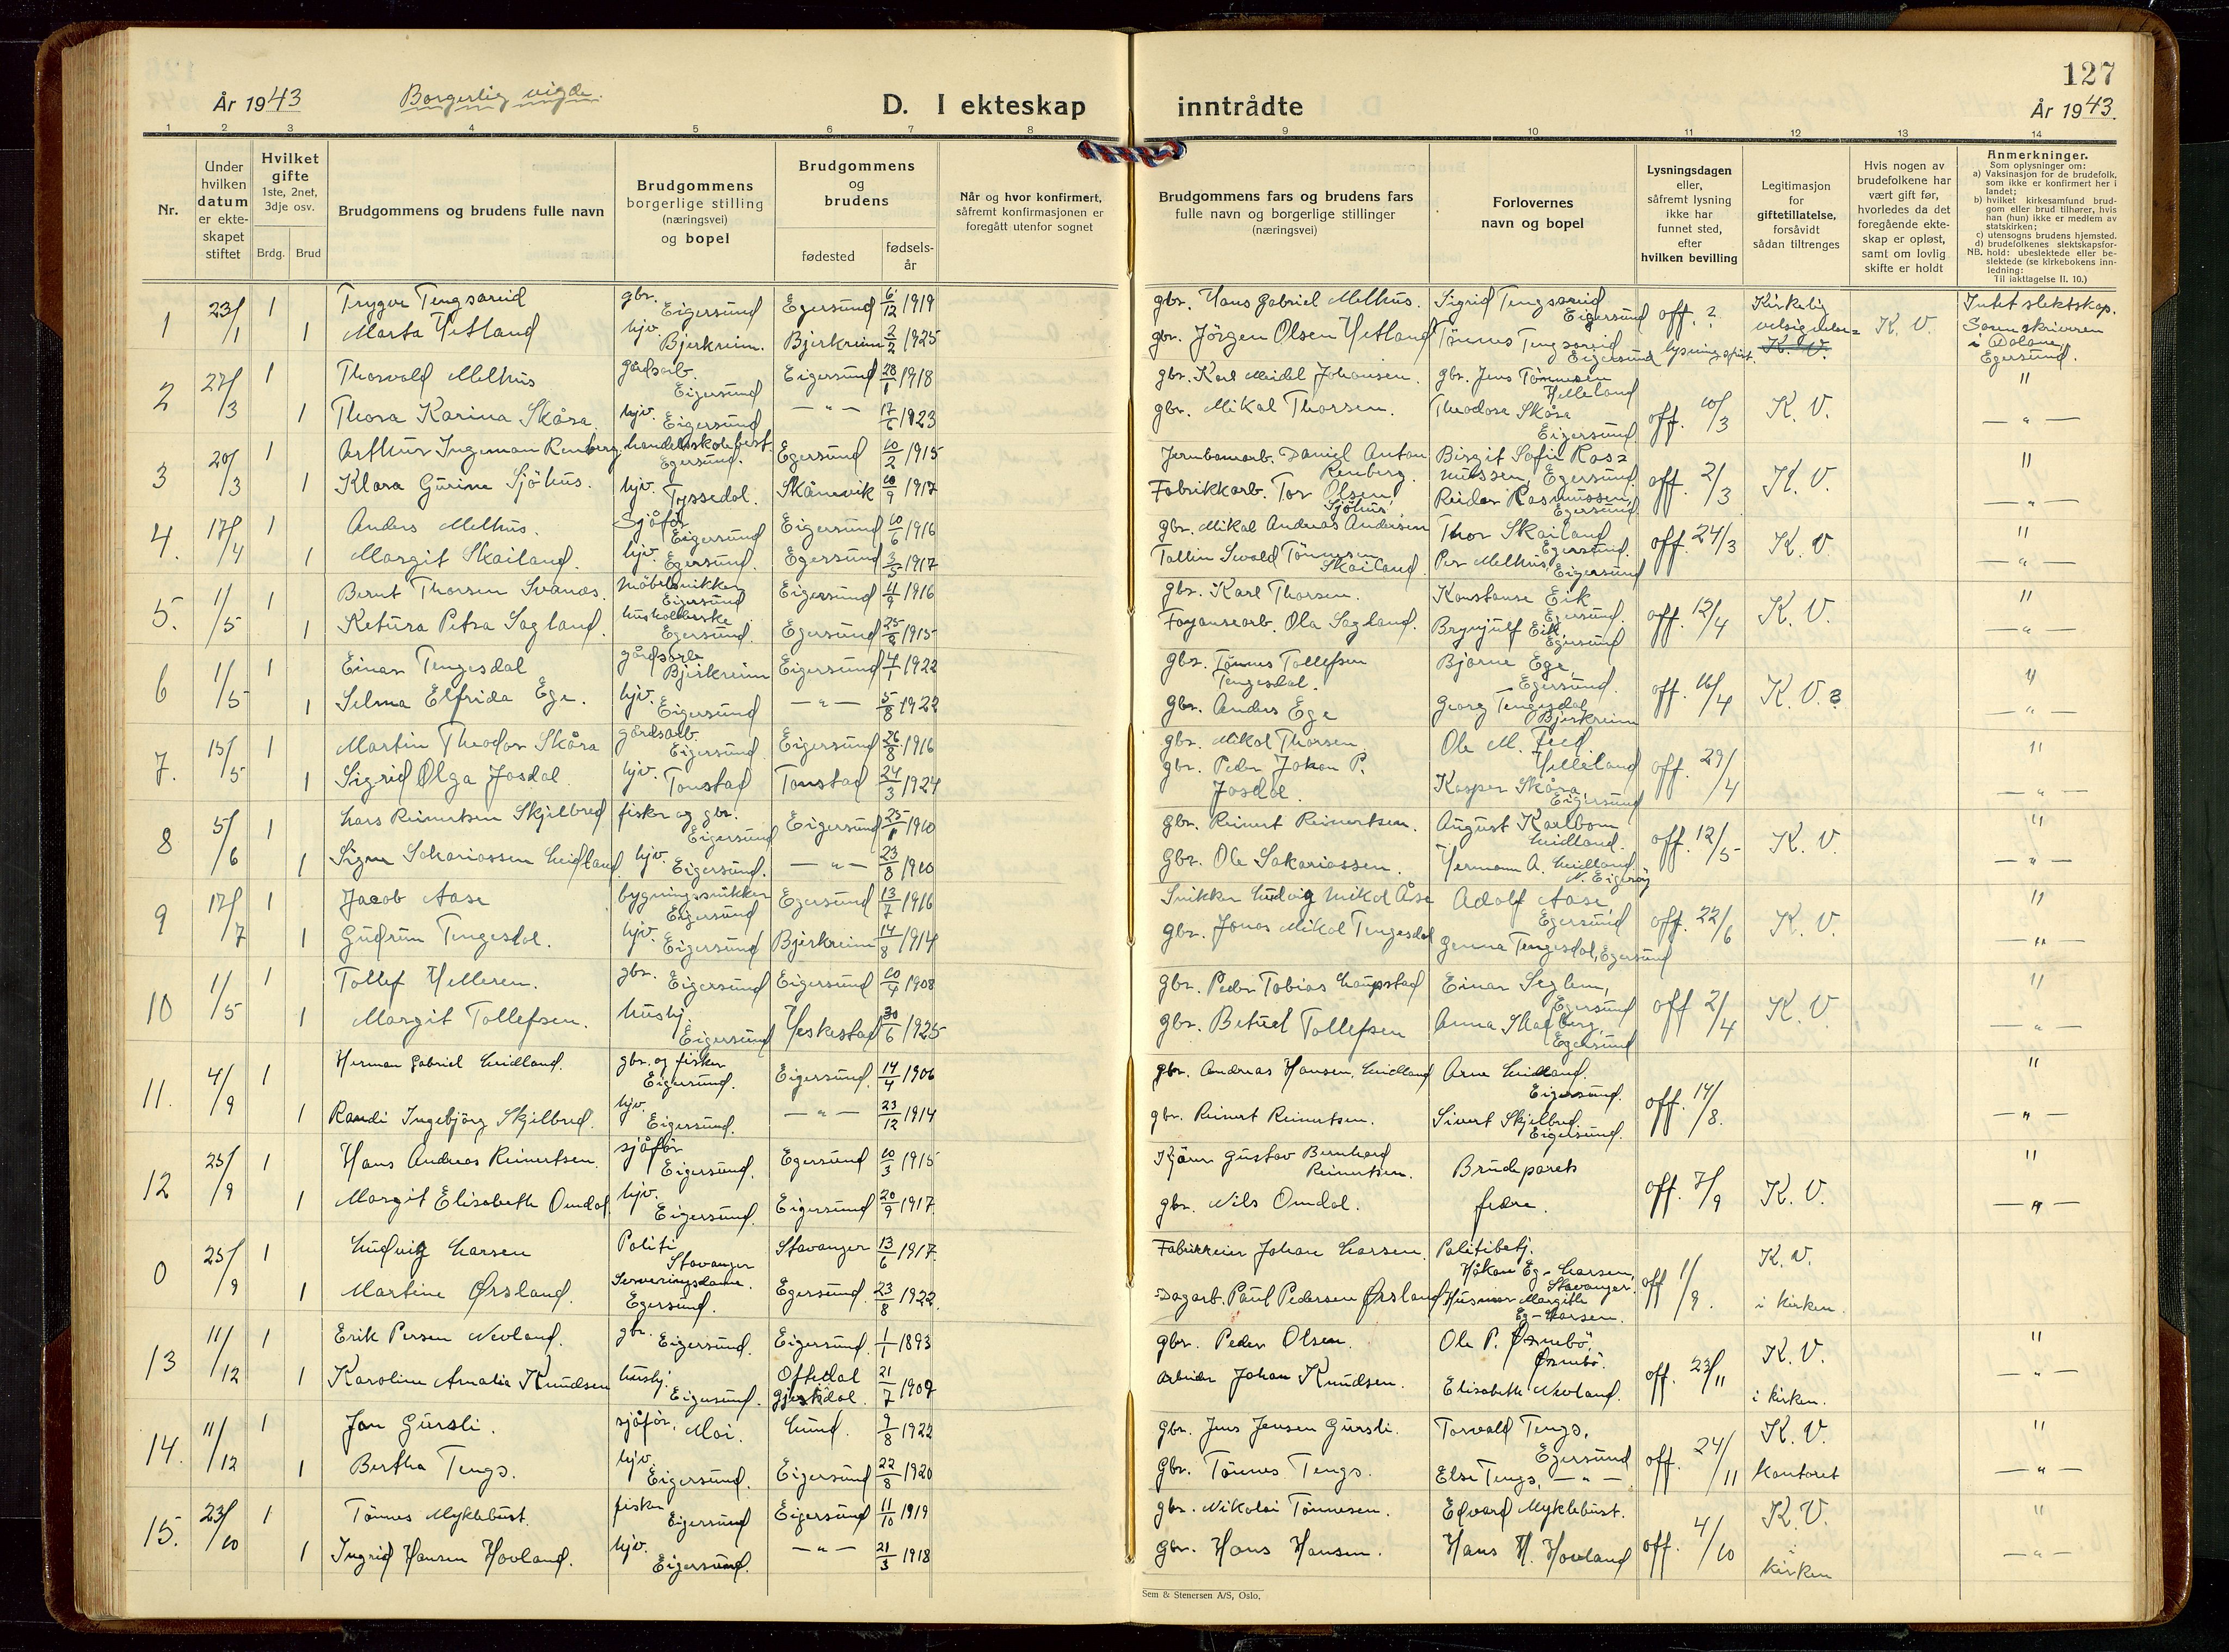 127
År 1943
Borgerlig vigde.
D. I ekteskap inntrådte
År 1943.
1 2 3 4 5 6 7 8 9 10 11 12 13 14
Nr.
Under hvilken datum er ekteskapet stiftet
Hvilket gifte 1ste, 2net, 3dje osv.
Brdg. Brud
Brudgommens og brudens fulle navn
Brudgommens borgerlige stilling (næringsvei) og bopel
Brudgommens og brudens
fødested
fødselsår
Når og hvor konfirmert, såfremt konfirmasjonen er foregått utenfor sognet
Brudgommens fars og brudens fars fulle navn og borgerlige stillinger (næringsvei)
Forlovernes navn og bopel
Lysningsdagen eller, såfremt lysning ikke har funnet sted, efter hvilken bevilling
Legitimasjon for giftetillatelse, forsåvidt sådan tiltrenges
Hvis nogen av brudefolkene har vært gift før, hvorledes da det foregående ekteskap er opløst, samt om lovlig skifte er holdt
Anmerkninger.
Som oplysninger om:
a) Vaksinasjon for de brudefolk, som ikke er konfirmert her i landet;
b) hvilket kirkesamfund brudgom eller brud tilhører, hvis han (hun) ikke er medlem av statskirken;
c) utensogns brudens hjemsted.
d) brudefolkenes slektskapsforhold: ubeslektede eller beslektede (se kirkebokens innledning:
NB.
Til iakttagelse II. 10.)
1 23/1 1 Trygve Tengsareid gbr. Eigersund Egersund 6/12 1919 gbr. Hans Gabriel Melhus. Sigrid Tengsareid Eigersund off. ? Kirkelig velsignelse K. V. Intet slektskap.
1 Marta Hetland hjv. Bjerkreim. Bjerkreim 2/2 1925 gbr. Jörgen Olsen Hetland Tönnes Tengsareid Eigersund lysningsfrist. K. V. Sorenskriveren i Dalane, Egersund.
2 27/3 1 Thorvald Melhus gårdsarb. Eigersund Eigersund 28/1 1918 gbr. Karl Meidel Johansen. gbr. Jens Tönnesen Helleland off. 10/3 K. V. "
1 Thora Karina Skåra. hjv. Eigersund — " — 17/6 1923 gbr. Mikal Thorsen. Theodor Skåra Eigersund — " —
3 20/3 1 Arthur Ingeman Renberg. handelsskolebest. Egersund. Egersund 10/2 1915 Jernbanearb. Daniel Anton Renberg. Birgit Sofie Rasmussen, Egersund. off. 2/3 K. V. "
1 Klara Gurine Sjöhus. hjv. Tyssedal. Skånevik 10/9 1917 Fabrikkarb. Tor Olsen Sjöhus. Reidar Rasmussen, Egersund — " —
4. 17/4 1 Anders Melhus. Sjåför Eigersund Eigersund 10/6 1916 gbr. Mikal Andreas Andersen Thor Skailand Egersund. off. 24/3 K. V. "
1 Margit Skailand. hjv. Egersund. Egersund 3/5 1917 Tollin Sevald Tönnesen Skailand. Per Melhus Eigersund — " —
5. 1/5 1 Bernt Thorsen Svanæs. Möbelsnikker Eigersund Eigersund 11/9 1916 gbr. Karl Thorsen. Konstanse Eik Egersund. off. 12/4 K. V. "
1 Ketura Petra Sagland. husholderske Egersund. Egersund 25/8 1915 Fayansearb. Ola Sagland. Brynjulf Eik, Egersund — " —
6 1/5 1 Einar Tengesdal gårdsarb. Bjerkreim Eigersund 4/1 1922 gbr. Tönnes Tollefsen Tengesdal. Bjarne Ege Egersund. off. 16/4 K. V. "
1 Selma Elfrida Ege. hjv. Eigersund — " — 5/8 1922 gbr. Anders Ege Georg Tengesdal Bjerkreim — " —
7. 15/5 1 Martin Theodor Skåra gårdsarb. Eigersund Eigersund 26/8 1916 gbr. Mikal Thorsen. Ole M. Helleland off. 29/4 "
1 Sigrid Olga Josdal. hjv. Tonstad Tonstad 24/3 1924 gbr. Peder Johan P. Josdal. Kasper Skåra, Eigersund — " —
8 5/6 1 Lars Reinertsen Skjelbred fisker og gbr. Eigersund Eigersund 25/1 1910 gbr. Reinert Reinertsen. August Karlbom Leidland. off. 12/5 K. V. "
1 Signe Sakariassen Leidland. hjv. Eigersund. — " — 23/8 1910 gbr. Ole Sakariassen. Hermann A. Leidland N. Eigeröy — " —
9 17/7 1 Jacob Aase bygningssnikker Eigersund Egersund 13/7 1916 Snikker Ludvig Mikal Åse Adolf Aase, Egersund off. 22/6 K. V. "
1 Gudrun Tengesdal. hjv. Eigersund Bjerkreim 14/8 1914 gbr. Jonas Mikal Tengesdal Genna Tengesdal, Egersund — " —
10 1/5 1 Tollef Helleren. gbr. Eigersund Eigersund 10/4 1908 gbr. Peder Tobias Laupstad Einar Seglem, Egersund off 2/4 K. V. "
1 Margit Tollefsen. hushj. Eigersund Heskestad 30/6 1925 gbr. Betuel Tollefsen Anna Skadberg, Egersund — " —
11. 4/9 1 Herman Gabriel Leidland. gbr. og fisker Eigersund. Eigersund. 14/4 1906 gbr. Andreas Hansen Leidland Arne Leidland. Eigersund. off. 14/8. "
1 Randi Ingebjörg Skjelbred. hjv. Eigersund. — " — 23/12 1914 gbr. Reinert Reinertsen. Sivert Skjelbred. Eigersund. — " —
12 25/9 1 Hans Andreas Reinertsen. sjåför Eigersund. Egersund 10/3 1915 Kjörer Gustav Bernhard Reinertsen. Brudeparets fedre. off. 7/9 K. V. "
1 Margit Elisabeth Omdal. hjv. Eigersund. Eigersund 20/9 1917. gbr. Nils Omdal. — " —
0 25/9 1 Ludvig Larsen Politi Stavanger Stavanger 13/6 1917. Fabrikkeier Johan Larsen. Politibetj. Håkon Eg-Larsen, Stavanger. off 1/9. K. V.
1 Martine Ørsland. Serveringsdame. Egersund. Egersund. 23/8 1922. Dagarb. Paul Pedersen Ørsland Husmor Margith Eg-Larsen. i kirken.
13 11/12 1 Erik Persen Nevland. gbr. Eigersund. Eigersund. 1/1 1893 gbr. Peder Olsen. Ole P. Örsebö. off. 23/11 K. V. "
1 Karoline Amalie Knudsen hushj. Eigersund. Oftedal Gjesdal. 21/7 1909 Arbeider Johan Knudsen. Elisabeth Nevland. i kirken. — " —
14. 11/12 1 Jan Gursli. sjåför. Moi. Lund. 9/8 1922 gbr. Jens Jensen Gursli. Torvald Tengs, Egersund off. 24/11 K. V. "
1 Bertha Tengs. hjv. Eigersund. Eigersund 22/8 1920 Gbr. Tönnes Tengs. Else Tengs, — " — kontoret — " —
15. 23/10 1 Tönnes Myklebust. fisker Eigersund Eigersund 11/10 1919 gbr. Nikolai Tönnesen. Edvard Myklebust. off. 4/10 K. V. "
1 Ingrid Hansen Hovland. hjv. Eigersund. — " — 21/3 1918 gbr. Hans Hansen. Hans H. Hovland kirken — " —
Sem & Stenersen A/S, Oslo.